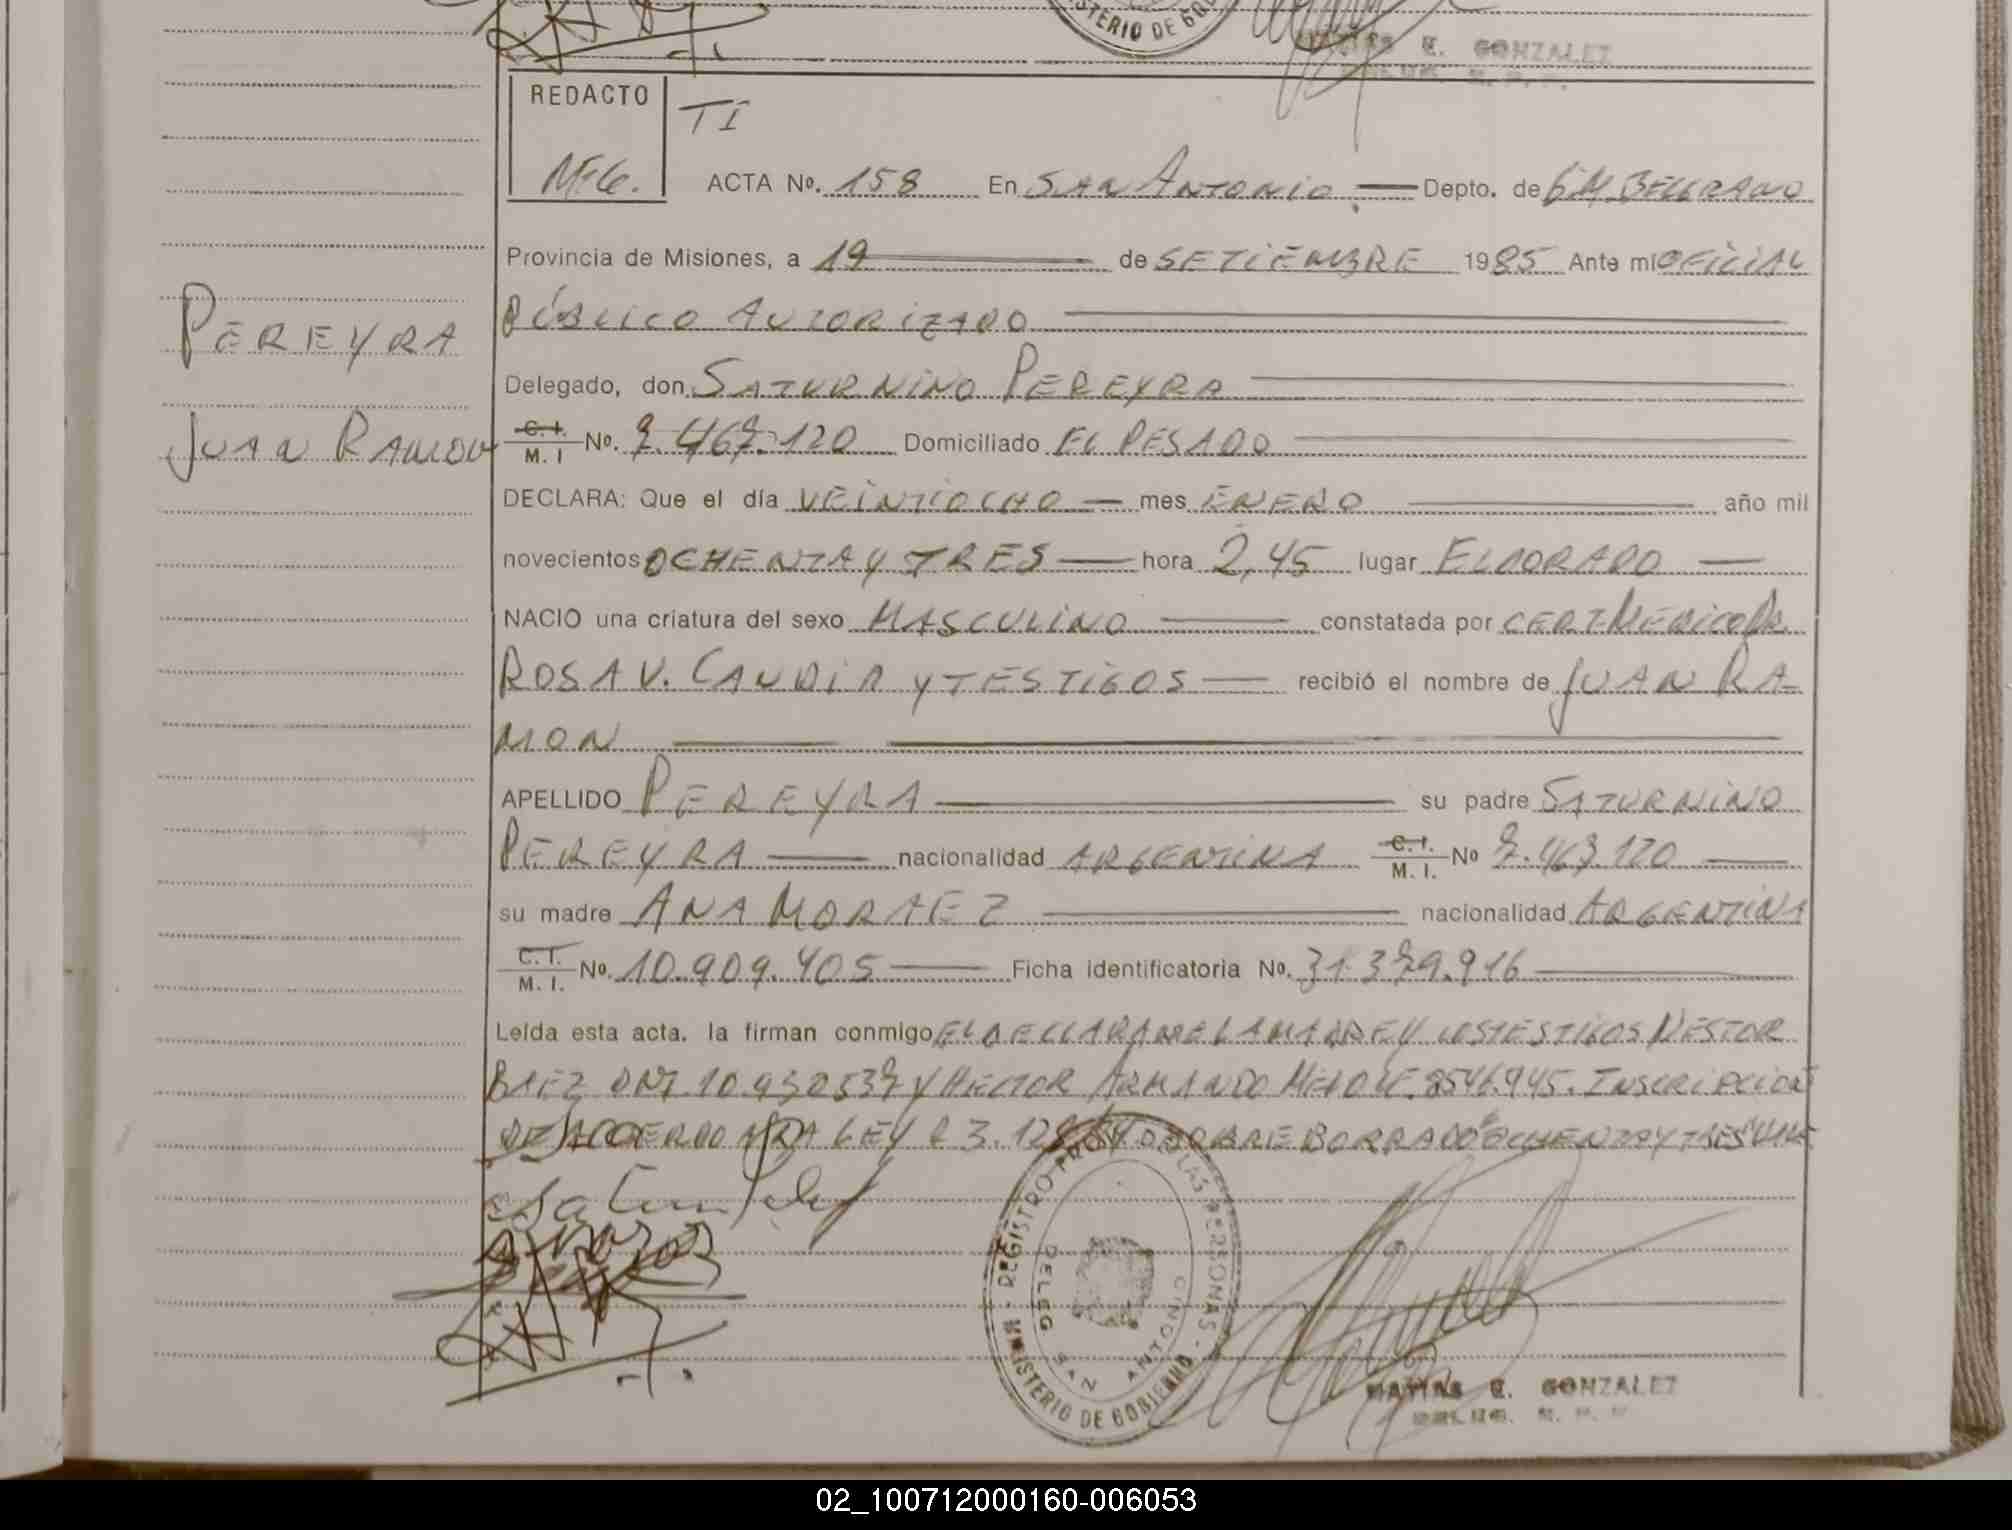 MINISTERIO DE GOB
MATIAS E. GONZALEZ
REDACTO
TI
M.G.
ACTA No. 158 En SAN ANTONIO Depto. de GM BELGRANO
Provincia de Misiones, a 19 de SETIEMBRE 1985 Ante mi OFICIAL
PÚBLICO AUTORIZADO
PEREYRA
Delegado, don SATURNINO PEREYRA
JUAN RAMON
C. I. / M. I No. 7.467.120 Domiciliado EL PESADO
DECLARA: Que el día VEINTIOCHO mes ENERO año mil
novecientos OCHENTA Y TRES hora 2,45 lugar ELDORADO
NACIO una criatura del sexo MASCULINO constatada por CERT. MEDICO DR.
ROSA V. CANDIA Y TESTIGOS recibió el nombre de JUAN RA-
MON
APELLIDO PEREYRA su padre SATURNINO
PEREYRA nacionalidad ARGENTINA C. I. / M. I. No 7.467.120
su madre ANA MORAEZ nacionalidad ARGENTINA
C. I. / M. I. No. 10.909.405 Ficha identificatoria No. 31.379.916
Leída esta acta, la firman conmigo EL DECLARANTE LA MADRE Y LOS TESTIGOS NESTOR
BAEZ DNI 10.930537 Y HECTOR ARMANDO MELO LE. 8546.945. INSCRIPCION
DE ACUERDO A LA LEY 23.128/84 SOBRE BORRADO "OCHENTA Y TRES" VALE
REGISTRO PROV. DE LAS PERSONAS - MINISTERIO DE GOBIERNO
DELEG. SAN ANTONIO
MATIAS E. GONZALEZ
DELEG. R. P. P.
02_100712000160-006053